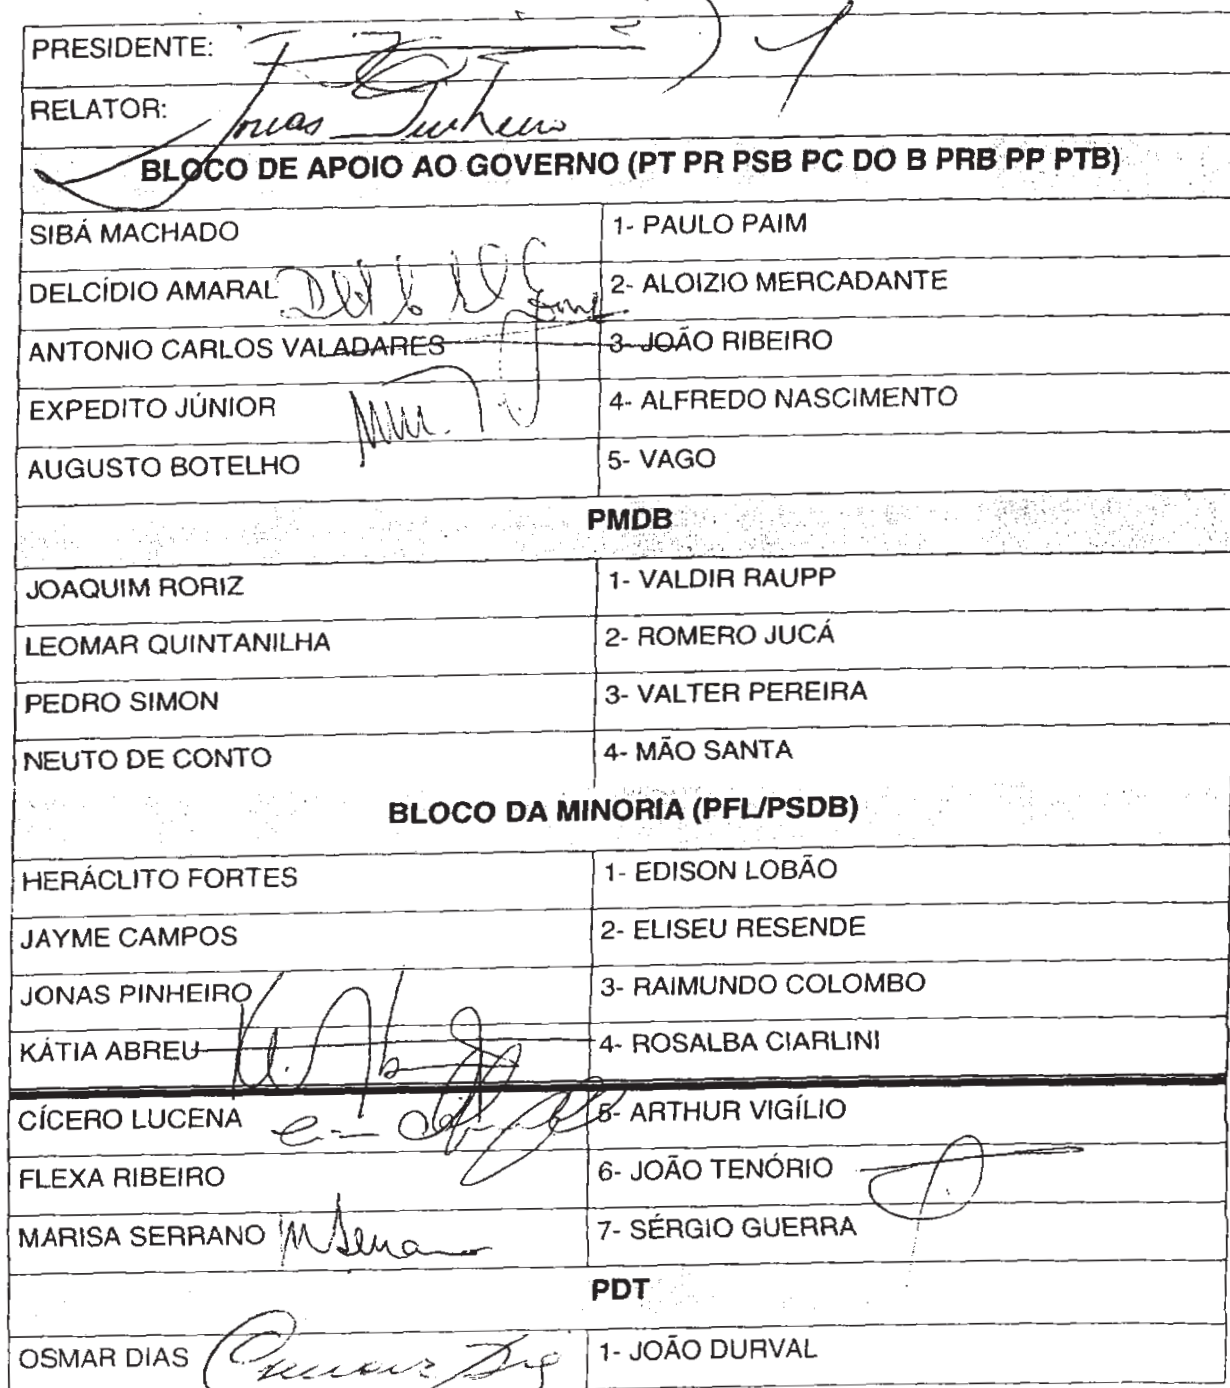 PRESIDENTE:
RELATOR: Jonas Pinheiro
BLOCO DE APOIO AO GOVERNO (PT PR PSB PC DO B PRB PP PTB)
SIBÁ MACHADO 1- PAULO PAIM
DELCÍDIO AMARAL 2- ALOIZIO MERCADANTE
ANTONIO CARLOS VALADARES 3- JOÃO RIBEIRO
EXPEDITO JÚNIOR 4- ALFREDO NASCIMENTO
AUGUSTO BOTELHO 5- VAGO
PMDB
JOAQUIM RORIZ 1- VALDIR RAUPP
LEOMAR QUINTANILHA 2- ROMERO JUCÁ
PEDRO SIMON 3- VALTER PEREIRA
NEUTO DE CONTO 4- MÃO SANTA
BLOCO DA MINORIA (PFL/PSDB)
HERÁCLITO FORTES 1- EDISON LOBÃO
JAYME CAMPOS 2- ELISEU RESENDE
JONAS PINHEIRO 3- RAIMUNDO COLOMBO
KÁTIA ABREU 4- ROSALBA CIARLINI
CÍCERO LUCENA 5- ARTHUR VIGÍLIO
FLEXA RIBEIRO 6- JOÃO TENÓRIO
MARISA SERRANO M Serrano 7- SÉRGIO GUERRA
PDT
OSMAR DIAS Osmar Dias 1- JOÃO DURVAL